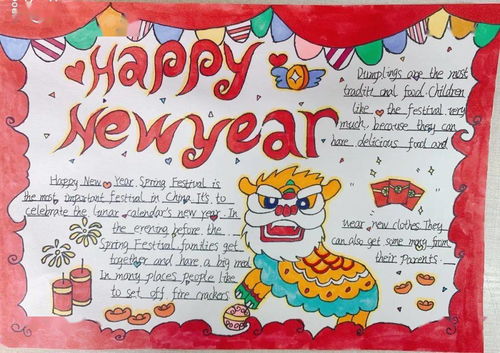 Happy
New year
Happy New Year. Spring Festival is
the most important festival in China. It's to
celebrate the lunar calendar's new year. In
the evening before the
Spring Festival families get
together and have a big meal
In many places people like
to set off fire crackers
Dumplings are the most
traditional food. Children
like the festival very
much, because they can
have delicious food and
wear new clothes. They
can also get some money from
their parents.